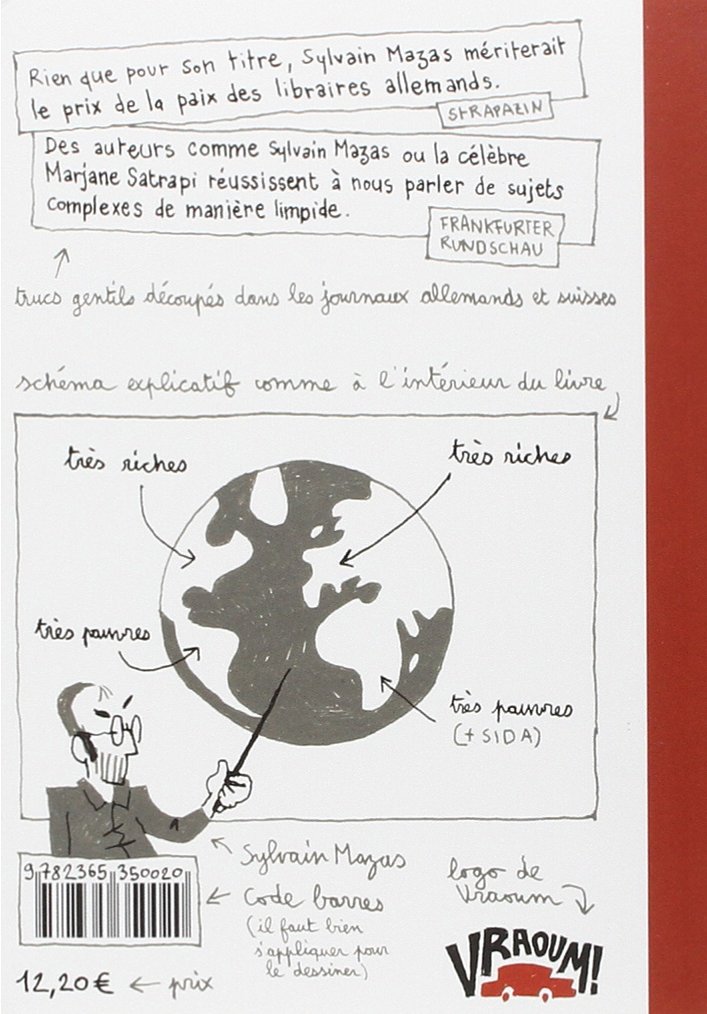 Rien que pour son titre, Sylvain Mazas mériterait
le prix de la paix des libraires allemands.
STRAPAZIN
Des auteurs comme Sylvain Mazas ou la célèbre
Marjane Satrapi réussissent à nous parler de sujets
complexes de manière limpide.
FRANKFURTER
RUNDSCHAU
trucs gentils découpés dans les journaux allemands et suisses
schéma explicatif comme à l'intérieur du livre
très riches
très riches
très pauvres
très pauvres
(+ SIDA)
Sylvain Mazas
9 782365 350020
code barres
(il faut bien
s'appliquer pour
le dessiner)
logo de
Vraoum
VRAOUM!
12,20€
prix